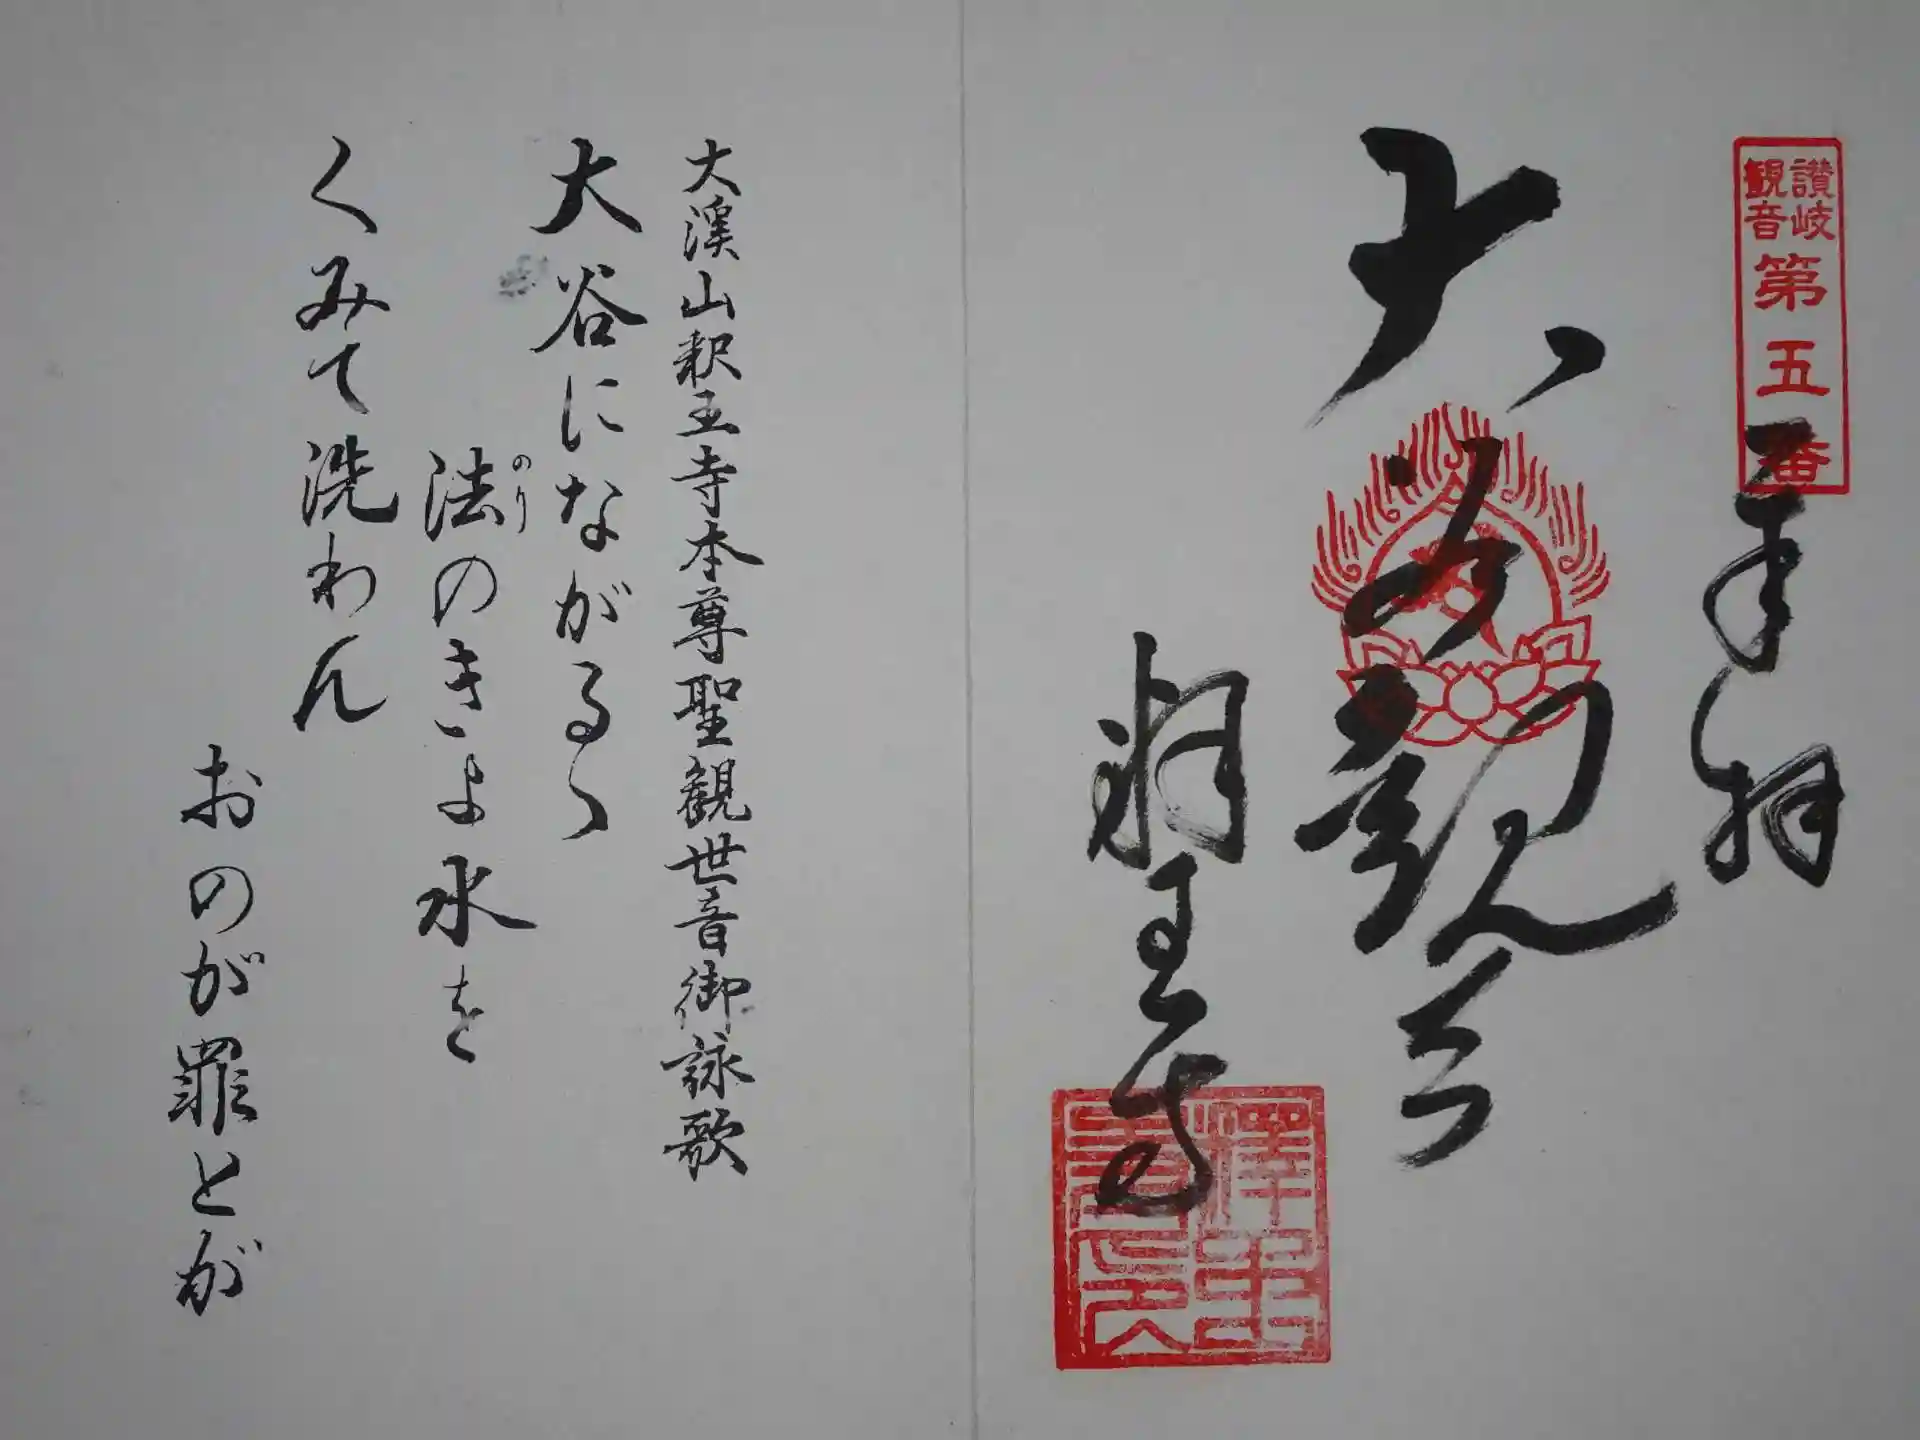 讃岐
観音
第五番
奉拝
大悲観音
釈王寺
大渓山釈王寺本尊聖観世音御詠歌
大谷にながるゝ
法のきよ水を
のり
くみて洗わん
おのが罪とが